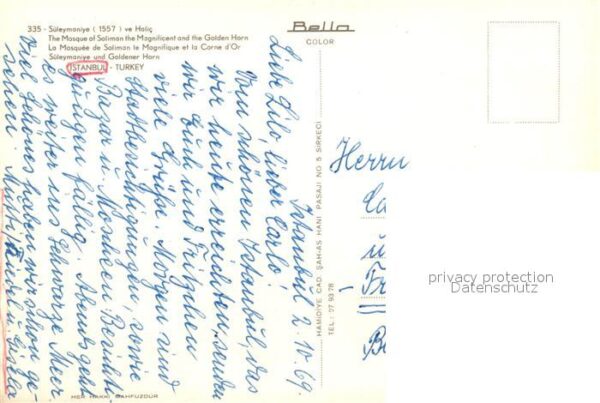 335 - Süleymaniye ( 1557 ) ve Haliç
The Mosque of Soliman the Magnificent and the Golden Horn
La Mosquée de Soliman le Magnifique et la Corne d'Or
Süleymaniye und Goldener Horn
İSTANBUL - TURKEY
Bello
COLOR
Istanbul 2.10.69.
Liebe Lilo, lieber Carlo!
Vom schönen Istanbul, das
wir heute erreichten, senden
wir Euch und
viele Grüße. Morgen sind
Stadtbesichtigungen, sowie
Bazar u. Moscheen Besichti-
gungen fällig. Abends geht
es weiter ins Schwarze Meer
viel Schönes haben wir schon ge-
sehen.
HAMIDIYE CAD. ŞAH-AS HANI PASAJI NO 5 SIRKECI
TEL.: 27 93 78
Herrn
Ca
u
Fr
Be
privacy protection
Datenschutz
HER HAKKI MAHFUZDUR